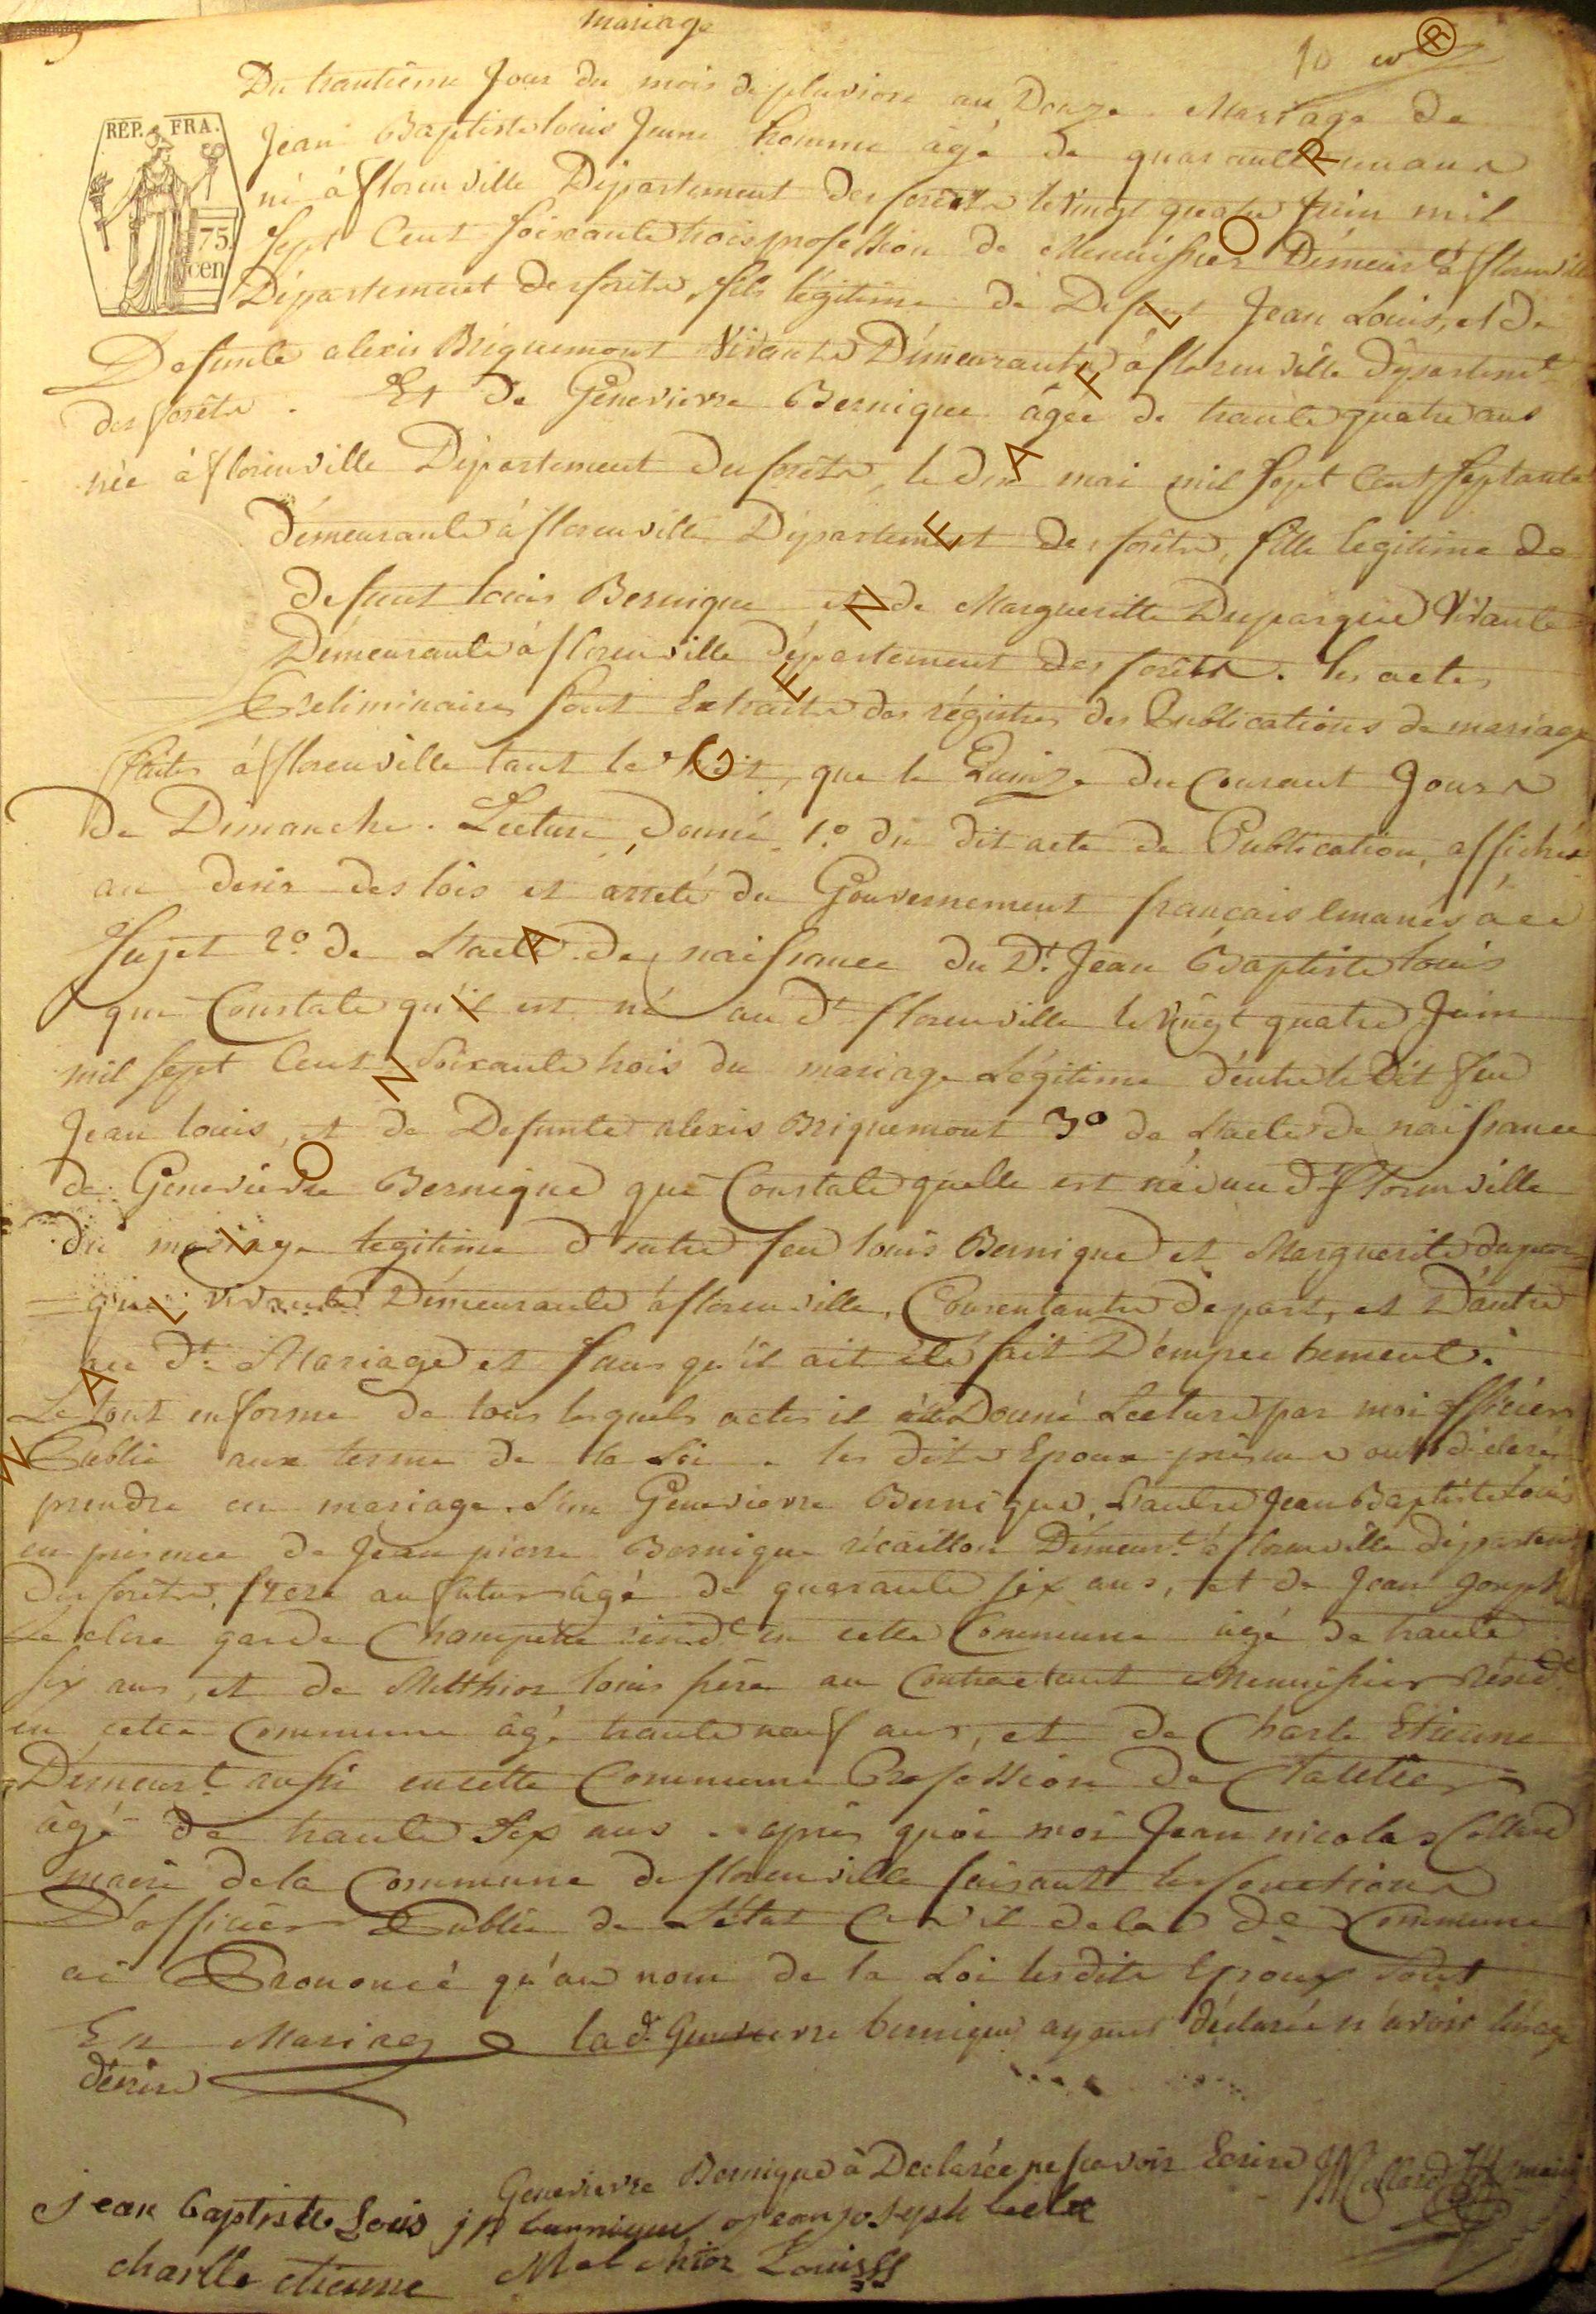 mariage
10
REP. FRA.
75.
cen
Du trantième Jour du mois de pluviose an Douze. Mariage de
Jean Baptiste louis Jeune homme âgé de quarante un ans
né à florenville Département des forêts le vingt quatre Juin mil
sept Cent soixante trois profession de Menuisier Demeurt à florenville
Département des forêts, fils légitime de Defunt Jean Louis, et de
Defunte alexis Briquemont Vivante Démeurante à florenville département
des forêts. Et de Génevierve Bernique âgée de trante quatre ans
née à florenville Département des forêts, le dix mai mil sept Cent septante
démeurante à florenville Département des forêts, fille legitime de
defunt louis Bernique et de Margueritte Duparque Vivante
Démeurante à florenville département des forêts. les actes
Preliminaires sont Extraits des régistres des Publications de mariage
faites à florenville tant le huit, que le Quinze du Courant Jours
de Dimanche. Lecture donné 1.º du dit acte de Publication, affichés
au desir des lois et arreté du Gouvernement français émanés à ce
Sujet 2º. de L'acte de naissance du Dt. Jean Baptiste louis
que Constate qu'il est né au dt florenville le vingt quatre Juin
mil sept Cent Soixante trois du mariage Légitime d'entre le dit feu
Jean louis, et de Defunte alexis Briquemont 3º de L'acte de naissance
de Genevierve Bernique que Constate quelle est née au dt florenville
du mariage legitime d'entre feu louis Bernique et Marguerite dupar=
=que vivante Démeurante à florenville, Consentante de part, et D'autre
au dt. Mariage et sans qu'il ait été fait D'empechement.
Le tout en forme de tous lesquels actes il a été Donné Lecture par moi officier
Public aux terme de la Loi. les dits Epoux présens ont déclaré
prendre en mariage. L'un Genevierve Bernique, L'autre Jean Baptiste Louis
en presence de Jean pierre Bernique Démeurt. à florenville départemt
des forêts, frere au futur âgé de quarante six ans, et de Jean Joseph
Le clere garde Champetre résidt en cette Commune âgé de trante
six ans, et de Melthior louis frère au Contractant Menuisier résidt
en cette Commune âgé trante neuf ans, et de Charle Etienne
Démeurt. aussi en cette Commune Profession de
âgé de trante six ans. après quoi moi Jean nicolas Collard
maire de la Commune de florenville faisant les fonctions
D'officier Public de L'état Civil de la de Commune
ai Prononcé qu'au nom de la Loi les dits Epoux sont
En Mariage la de. Genevierve bernique ayant déclarée n'avoir l'usage
d'ecrire
Genevierve Bernique à Declarée ne scavoir Ecrire
jean baptiste Louis jp bernique jean joseph
JN Collard maire
charlle etienne Melchior Louis
WALLONIA GENEAFLOR ®